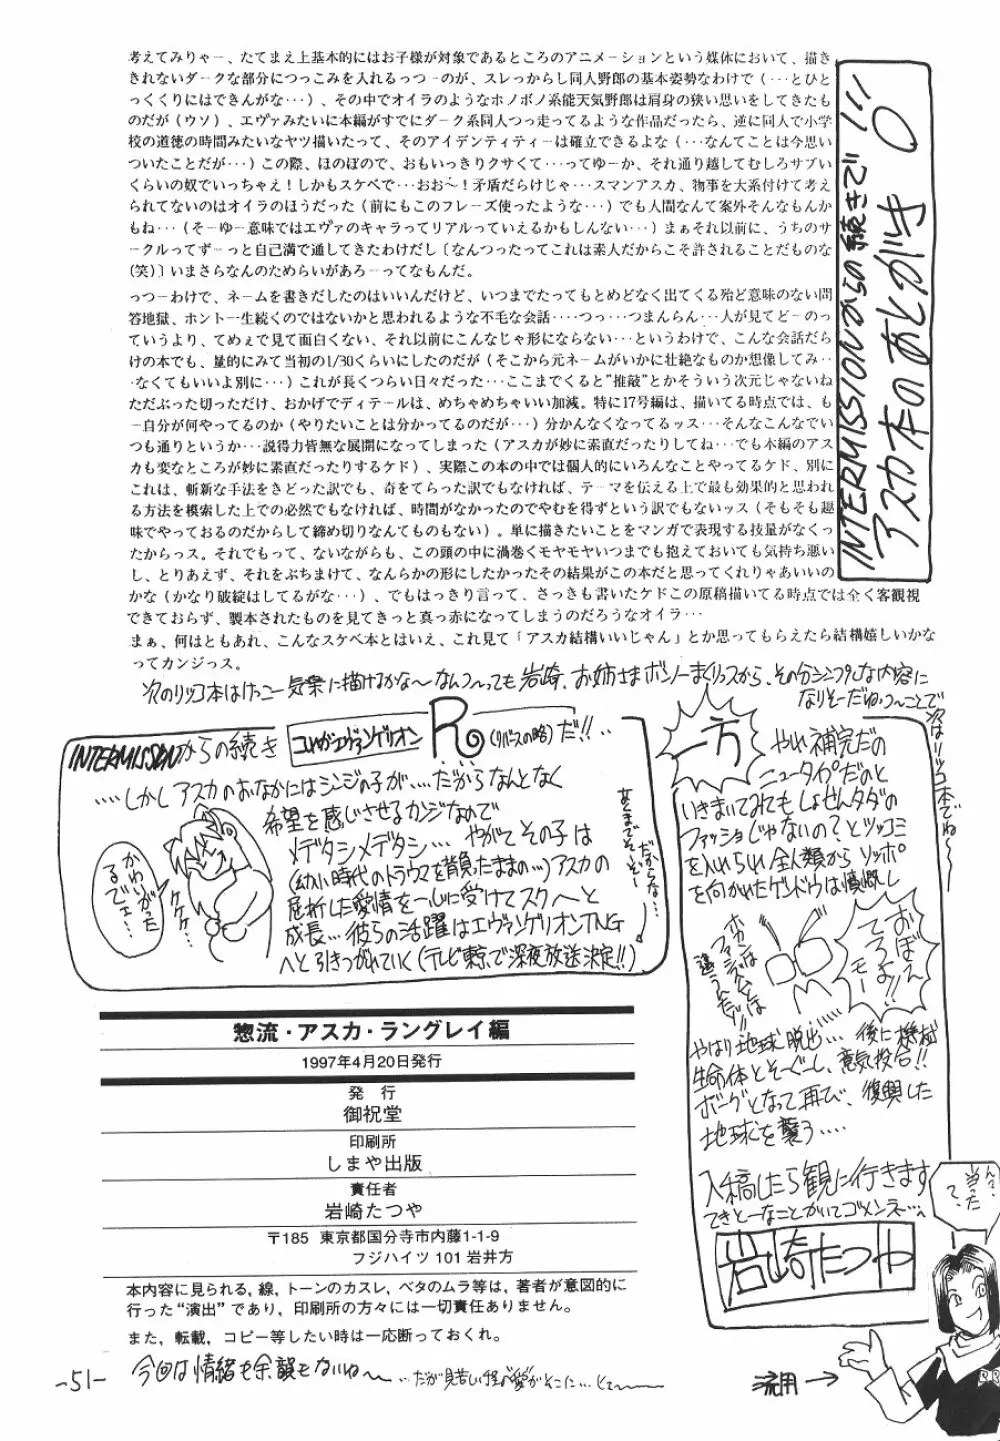 INTERMISSIONからの続きで!!!
アスカ本のあとがき
考えてみりゃー、たてまえ上基本的にはお子様が対象であるところのアニメーションという媒体において、描き
きれないダークな部分につっこみを入れるっつーのが、スレっからし同人野郎の基本姿勢なわけで(…とひと
っくくりにはできんがな…)、その中でオイラのようなホノボノ系能天気野郎は肩身の狭い思いをしてきたも
のだが(ウソ)、エヴァみたいに本編がすでにダーク系同人つっ走ってるような作品だったら、逆に同人で小学
校の道徳の時間みたいなヤツ描いたって、そのアイデンティティーは確立できるよな(…なんてことは今思い
ついたことだが…)この際、ほのぼので、おもいっきりクサくて…ってゆーか、それ通り越してむしろサブい
くらいの奴でいっちゃえ!しかもスケベで…おお〜!矛盾だらけじゃ…スマンアスカ、物事を大系付けて考え
られてないのはオイラのほうだった(前にもこのフレーズ使ったような…)でも人間なんて案外そんなもんか
もね…(そーゆー意味ではエヴァのキャラってリアルっていえるかもしんない…)まぁそれ以前に、うちのサ
ークルってずーっと自己満で通してきたわけだし〔なんつったってこれは素人だからこそ許されることだものな
(笑)〕いまさらなんのためらいがあろーってなもんだ。
っつーわけで、ネームを書きだしたのはいいんだけど、いつまでたってもとめどなく出てくる殆ど意味のない問
答地獄、ホント一生続くのではないかと思われるような不毛な会話‥‥つっ…つまんらん…人が見てどーのっ
ていうより、てめぇで見て面白くない、それ以前にこんなじゃ形にならない…というわけで、こんな会話だら
けの本でも、量的にみて当初の1/30くらいにしたのだが(そこから元ネームがいかに壮絶なものか想像してみ‥
・なくてもいいよ別に…)これが長くつらい日々だった…ここまでくると"推敲"とかそういう次元じゃないね
ただぶった切っただけ、おかげでディテールは、めちゃめちゃいい加減。特に17号編は、描いてる時点では、も
ー自分が何やってるのか(やりたいことは分かってるのだが…)分かんなくなってるッス…そんなこんなでい
つも通りというか…説得力皆無な展開になってしまった(アスカが妙に素直だったりしてね…でも本編のアス
カも変なところが妙に素直だったりするケド)、実際この本の中では個人的にいろんなことやってるケド、別に
これは、斬新な手法をきどった訳でも、奇をてらった訳でもなければ、テーマを伝える上で最も効果的と思われ
る方法を模索した上での必然でもなければ、時間がなかったのでやむを得ずという訳でもないッス(そもそも趣
味でやっておるのだからして締め切りなんてものもない)。単に描きたいことをマンガで表現する技量がなくっ
たからっス。それでもって、ないながらも、この頭の中に渦巻くモヤモヤいつまでも抱えておいても気持ち悪い
し、とりあえず、それをぶちまけて、なんらかの形にしたかったその結果がこの本だと思ってくれりゃあいいの
かな(かなり破綻はしてるがな…)、でもはっきり言って、さっきも書いたケドこの原稿描いてる時点では全く客観視
できておらず、製本されたものを見てきっと真っ赤になってしまうのだろうなオイラ…
まぁ、何はともあれ、こんなスケベ本とはいえ、これ見て「アスカ結構いいじゃん」とか思ってもらえたら結構嬉しいかな
ってカンジっス。
次のリツコ本はけっこー気楽に描けるかな〜なんつ〜っても岩崎、お姉さまボンノーまくりっスから、その分シンプルな内容に
なりそーだね、つ〜ことで
次はリツコ本でね〜
INTERMISSIONからの続き
これがエヴァンゲリオン
R
(リバースの略)だ!!‥
‥‥しかしアスカのおなかにはシンジの子が‥‥だからなんとなく
希望を感じさせるカンジなので
メデタシメデタシ… やがてその子は
(幼い時代のトラウマを背負ったままの…)アスカの
屈折した愛情を一心に受けてスクスクと
成長…彼らの活躍はエヴァンゲリオンTNG
へと引きつがれていく(テレビ東京で深夜放送決定!!)
かわいがった
るでェ…
ケケケ…
一方
やれ補完だの
ニュータイプだのと
いきまいてみてもしょせんタダの
ファッショじゃないの?とツッコミ
を入れられ全人類からソッポ
を向かれたゲンドウは憤慨し
おぼえ
てろよ!!
モー
やはり地球脱出… 後に機械
生命体とそーぐーし、意気投合!!
ボーグとなって再び、復興した
地球を襲う‥‥
入稿したら観に行きます
てきとーなことかいてゴメンネ…
岩崎たつや
流用→
惣流・アスカ・ラングレイ編
1997年4月20日発行
発 行
御祝堂
印刷所
しまや出版
責任者
岩崎たつや
〒185 東京都国分寺市内藤1-1-9
フジハイツ 101 岩井方
本内容に見られる,線,トーンのカスレ,ベタのムラ等は,著者が意図的に
行った“演出”であり,印刷所の方々には一切責任ありません。
また,転載,コピー等したい時は一応断っておくれ。
今回は情緒も余韻もないね〜
-51-